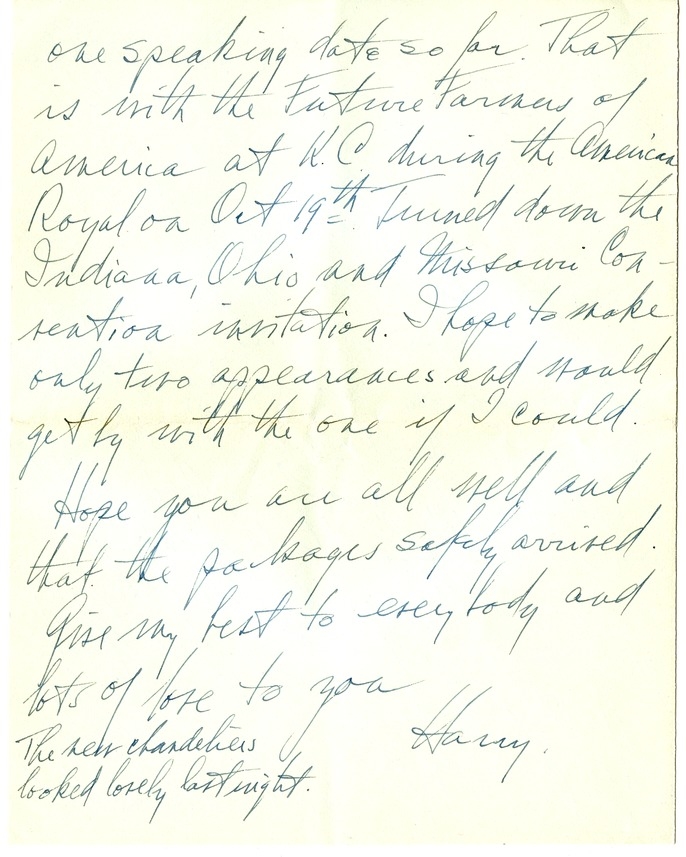 one speaking date so far. That
is with the Future Farmers of
America at K.C. during the American
Royal on Oct 19th. Turned down the
Indiana, Ohio and Missouri Con-
vention invitation. I hope to make
only two appearances and would
get by with the one if I could.
Hope you are all well and
that the packages safely arrived.
Give my best to everybody and
lots of love to you
Harry.
The new chandeliers
looked lovely last night.